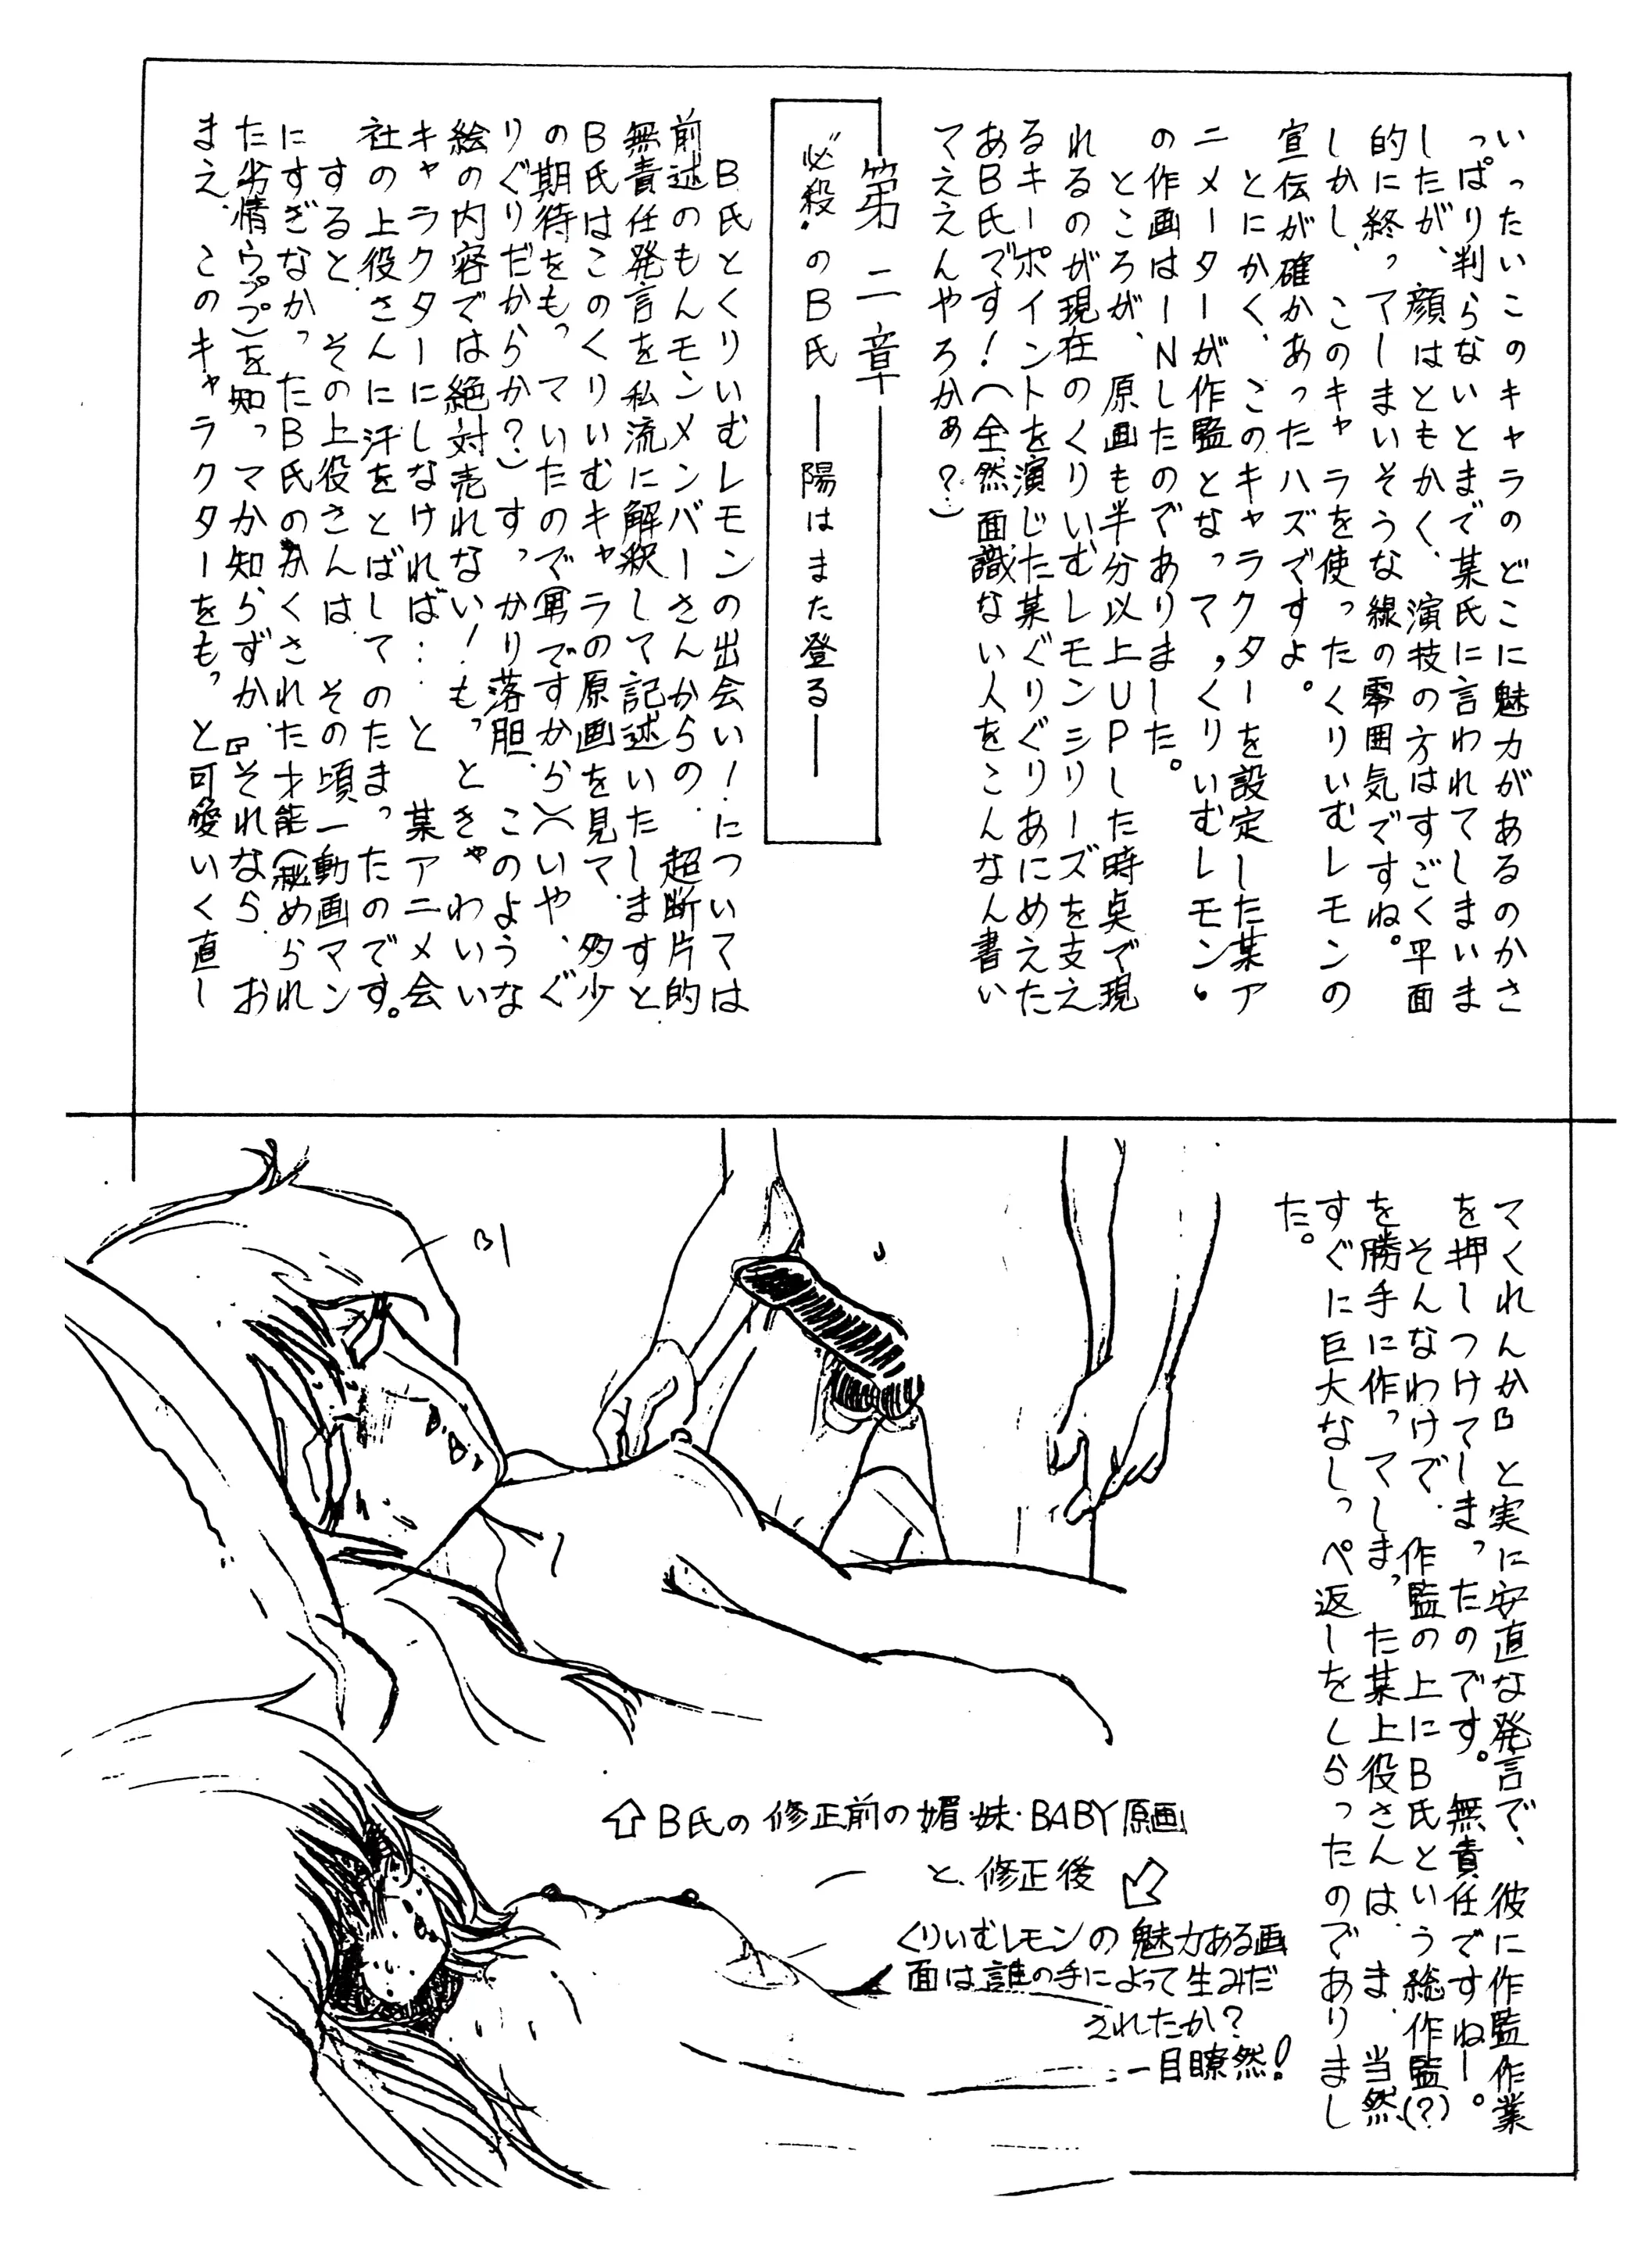 いったいこのキャラのどこに魅力があるのかさ
っぱり判らないとまで某氏に言われてしまいま
したが、顔はともかく、演技の方はすごく平面
的に終ってしまいそうな線の雰囲気ですね。
しかし、このキャラを使ったくりいむレモンの
宣伝が確かあったハズですよ。
とにかく、このキャラクターを設定した某ア
ニメーターが作監となって，くりいむレモン，
の作画はＩＮしたのでありました。
ところが、原画も半分以上ＵＰした時点で現
れるのが現在のくりいむレモンシリーズを支え
るキーポイントを演じた某ぐりぐりあにめえた
あＢ氏です！（全然面識ない人をこんなん書い
てええんやろかぁ？）
第二章
“必殺”のＢ氏 ――陽はまた登る――
Ｂ氏とくりいむレモンの出会い！については
前述のもんモンメンバーさんからの、超断片的
無責任発言を私流に解釈して記述いたしますと
Ｂ氏はこのくりいむキャラの原画を見て、多少
の期待をもっていたので（男ですから）（いや、ぐ
りぐりだからか？）すっかり落胆、このような
絵の内容では絶対売れない！もっときゃわいい
キャラクターにしなければ……と某アニメ会
社の上役さんに汗をとばしてのたまったのです。
すると、その上役さんは、その頃一動画マン
にすぎなかったＢ氏のかくされた才能（秘められ
た劣情ウププ）を知ってか知らずか、『それなら、お
まえ、このキャラクターをもっと可愛いく直し
てくれんか』と実に安直な発言で、彼に作監作業
を押しつけてしまったのです。無責任ですねー。
そんなわけで、作監の上にＢ氏という総作監（？）
を勝手に作ってしまった某上役さんは、ま、当然、
すぐに巨大なしっぺ返しをくらったのでありまし
た。
B1
⇧B氏の修正前の媚・妹・BABY原画
と、修正後
くりいむレモンの魅力ある画
面は誰の手によって生みだ
されたか？
一目瞭然！